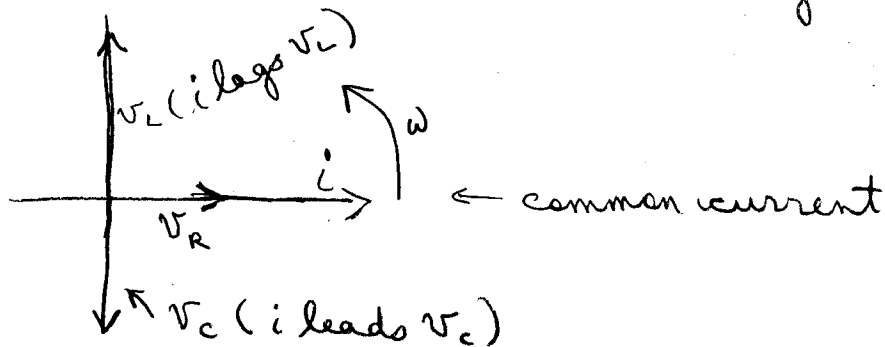 v_L (i lags v_L)
ω
i
v_R
← common current
v_C (i leads v_C)